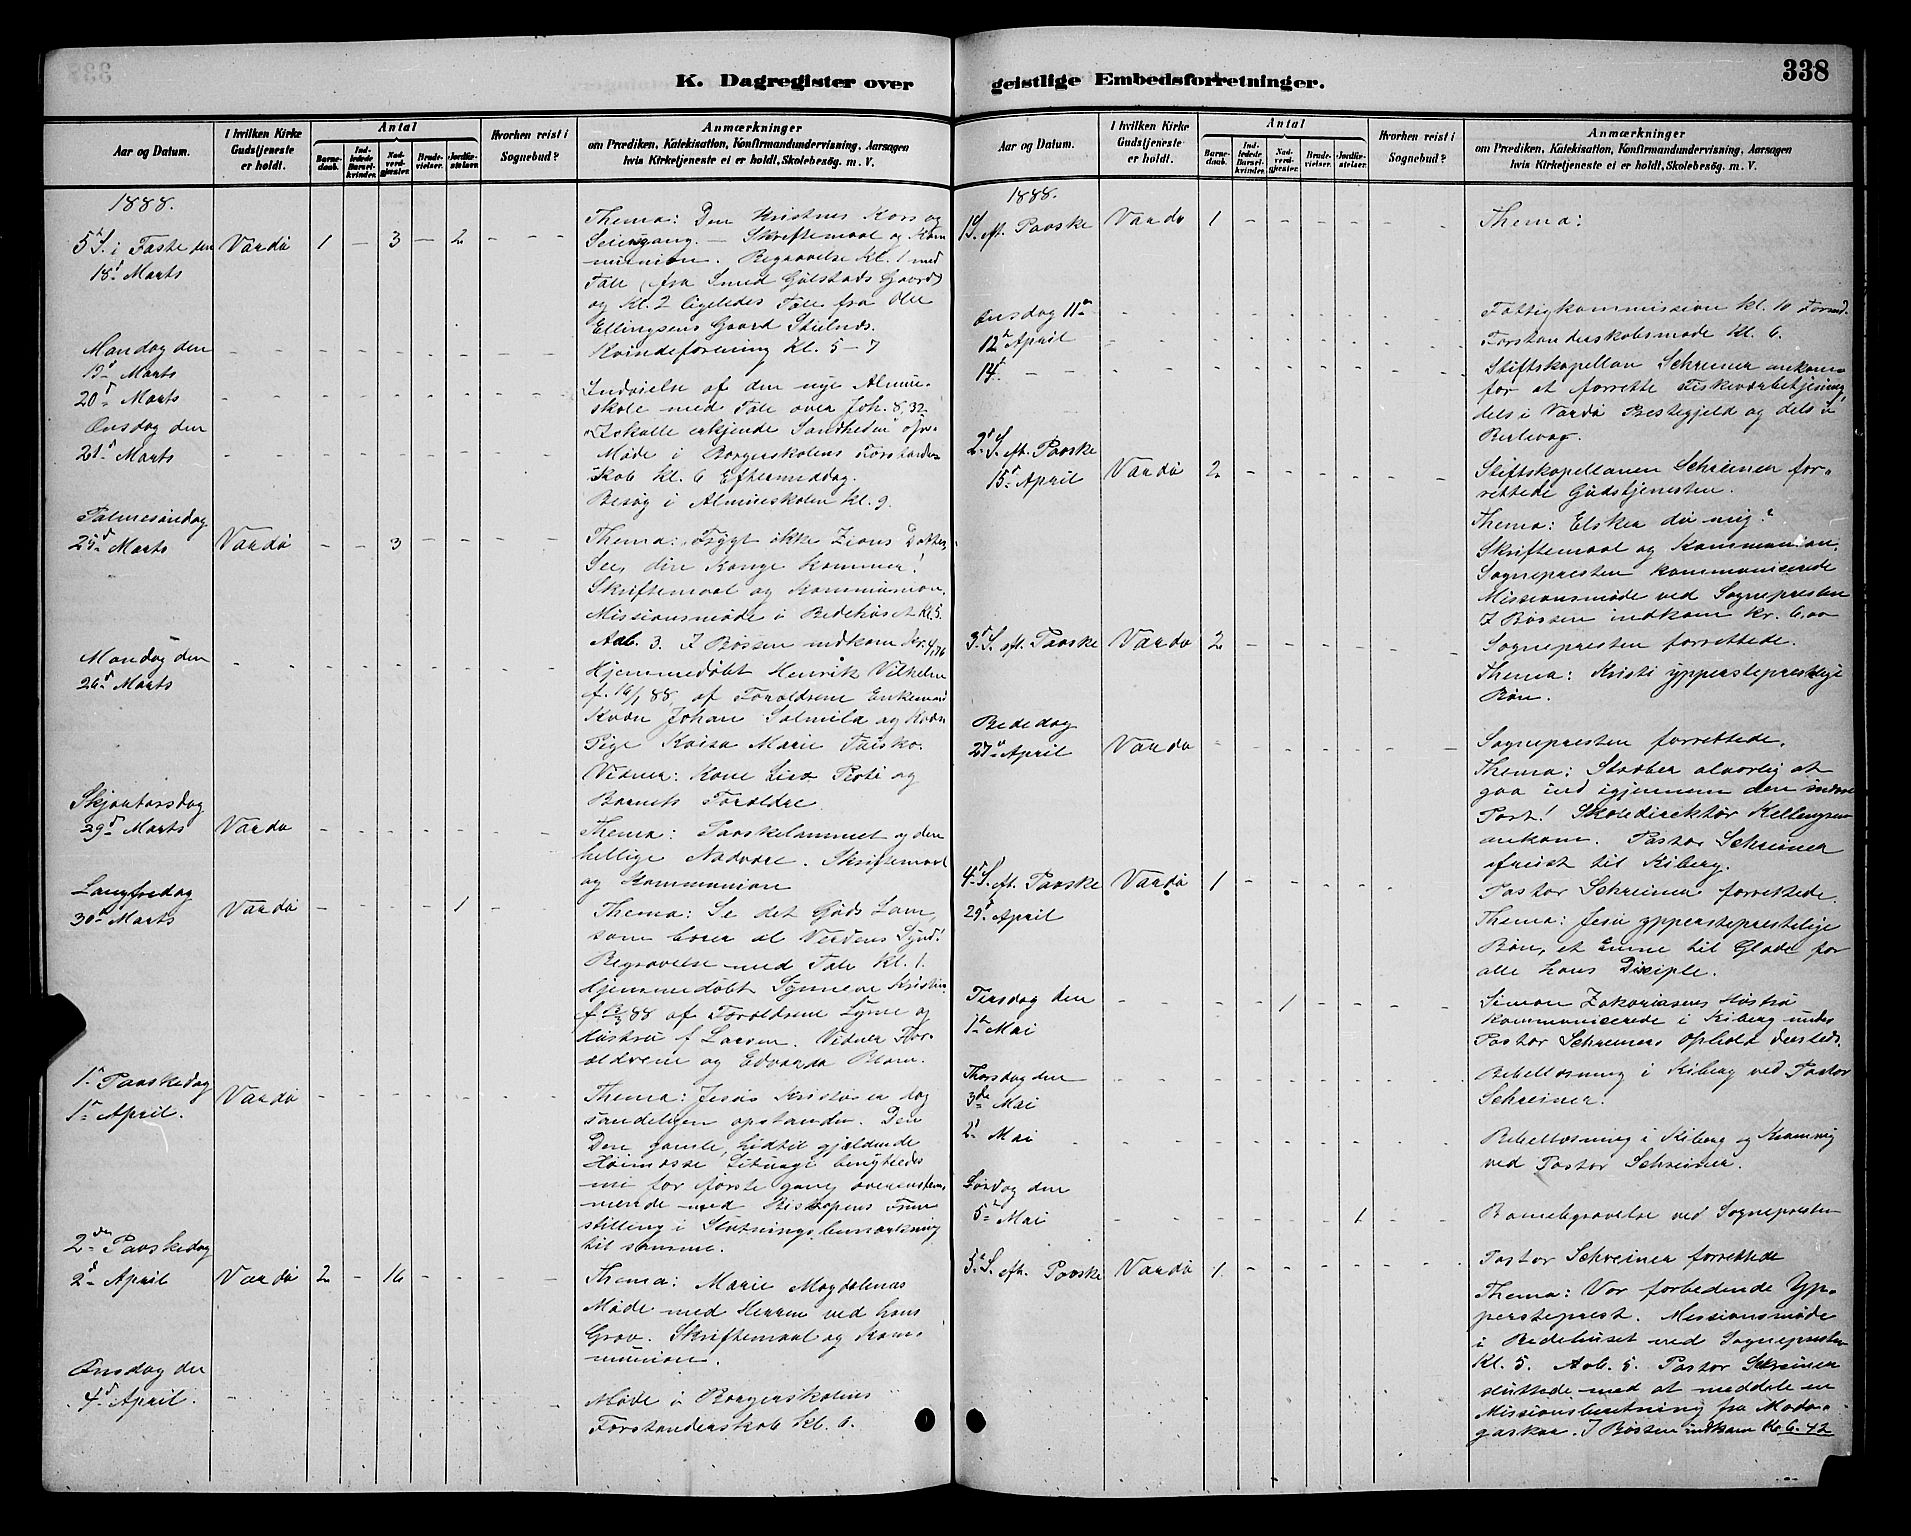 338
K. Dagregister over geistlige Embedsforretninger.
Aar og Datum.
I hvilken Kirke Gudstjeneste er holdt.
Antal
Barnedaab.
Indledede Barselkvinder.
Nadverdgjester.
Brudevielser.
Jordfæstelser.
Hvorhen reist i Sognebud?
Anmærkninger
om Prædiken, Katekisation, Konfirmandundervisning, Aarsagen
hvis Kirketjeneste ei er holdt, Skolebesög. m. V.
1888.
5te S. i Faste den Vardö 1 – 3 – 2 – – –
18de Marts
Thema: Den Kristnes Kors og
Seiersgang. – Skriftemaal og Kom
munion. Begravelse kl. 1 med
Tale (fra Smed Gulstads Gaard)
og kl. 2 ligeledes Tale fra Ole
Ellingsens Gaard
Mandag den
19de Marts
Kvindeforening kl. 5–7
20de Marts
Indvielse af den nye Almue-
skole med Tale over Joh. 8,32
I skulle erkjende Sandheden
Onsdag den
21de Marts
Møde i Borgerskolens Forstander-
skab kl. 6 Eftermiddag.
Besøg i Almueskolen kl. 9.
Palmesöndag
25de Marts Vardö – – 3 – – – – –
Thema: Frygt ikke Zions Datter,
See, din Konge kommer!
Skriftemaal og Kommunion.
Missionsmöde i Bedehuset kl. 5.
Aab. 3. I Bössen indkom Kr. 4,76
Mandag den
26de Marts
Hjemmedöbt Henrik Vilhelm
f. 16/1 88, af Forældrene Enkemand
Kvæn Johan Salmila og Kvæn
Pige Kaisa Marie
Vidner: Kone Lisa og
Barnets Forældre.
Skjærtorsdag
29de Marts Vardö
Thema: Paaskelammet og den
hellige Nadvere. Skriftemaal
og Kommunion
Langfredag
30de Marts Vardö 1
Thema: Se det Guds Lam,
som bærer al Verdens Synd!
Begravelse med Tale kl. 1.
Hjemmedöbt Synneve Kristin
88 af Forældrene Lyme og
Hustru f. Larsen. Vidner For-
ældrene og Edvarda
1ste Paaskedag
1ste April. Vardö
Thema: Jesus Kristus er dog
sandeligen opstanden. Den
Den gamle, hidtil gjældende
Höimesse Liturgi benyttedes
nu for förste gang overensstem-
mende med Biskopens Frem
stilling i Slutningsbemærkning
til samme.
2den Paaskedag
2den April Vardö 2 – 16 – – – –
Thema: Marie Magdalenas
Möde med Herren ved hans
Grav. Skriftemaal og Kom-
munion.
Onsdag den
4de April.
Möde i Borgerskolens
Forstanderskab kl. 6.
Aar og Datum.
I hvilken Kirke Gudstjeneste er holdt.
Antal
Barnedaab.
Indledede Barselkvinder.
Nadverdgjester.
Brudevielser.
Jordfæstelser.
Hvorhen reist i Sognebud?
Anmærkninger
om Prædiken, Katekisation, Konfirmandundervisning, Aarsagen
hvis Kirketjeneste ei er holdt, Skolebesög. m. V.
1888.
1ste S. eft. Paaske Vardö 1 – – – – – –
Thema:
Onsdag 11te
Fattigkommission kl. 10 Formd.
12te April
Forstanderskabsmöde kl. 6.
14de
Stiftskapellan Schreiner ankom
for at forrette Fiskeværbetjening,
dels i Vardö Prestegjeld og dels i
Berlevag.
2den S. eft. Paaske
15de April Vardö 2
Stiftskapellanen Schreiner for-
rettede Gudstjenesten.
Thema: Elsker du mig?
Skriftemaal og Kommunion.
Sognepresten kommunicerede
Missionsmöde ved Sognepresten
I Bössen indkom kr. 6,00
3die S. eft. Paaske Vardö 2
Sognepresten forrettede.
Thema: Kristi ypperstepresteslige
Bön.
Bededag
27de April Vardö
Sognepresten forrettede.
Thema: Stræber alvorlig at
gaa ind igjennem den snevre
Port! Skoledirektör Killengreen
ankom. Pastor Schreiner
afreist til Kiberg.
4de S. eft. Paaske Vardö 1
29de April
Pastor Schreiner forrettede.
Thema: Jesu ypperstepresteslige
Bön, et Emne til Glæde for
alle hans Disciple.
Tirsdag den
1ste Mai 1
Simon Zakariasens Hustru
kommunicerede i Kiberg under
Pastor Schreiners Ophold dersteds.
Thorsdag den
3de Mai
Bibellæsning i Kiberg ved Pastor
Schreiner.
2den Mai
Bibellæsning i Kiberg og Kramvig
ved Pastor Schreiner.
Lördag den
5te Mai 1
Barnebegravelse ved Sognepresten
5te S. eft. Paaske Vardö 1
Pastor Schreiner forrettede
Thema: Vor forbedende Yp-
persteprest. Missionsmöde
i Bedehuset ved Sognepresten
Kl. 5. Aab. 5. Pastor Schreiner
sluttede med at meddele en
Missionsberetning fra Mada-
gaskar. I Bössen indkom Kr 6.42